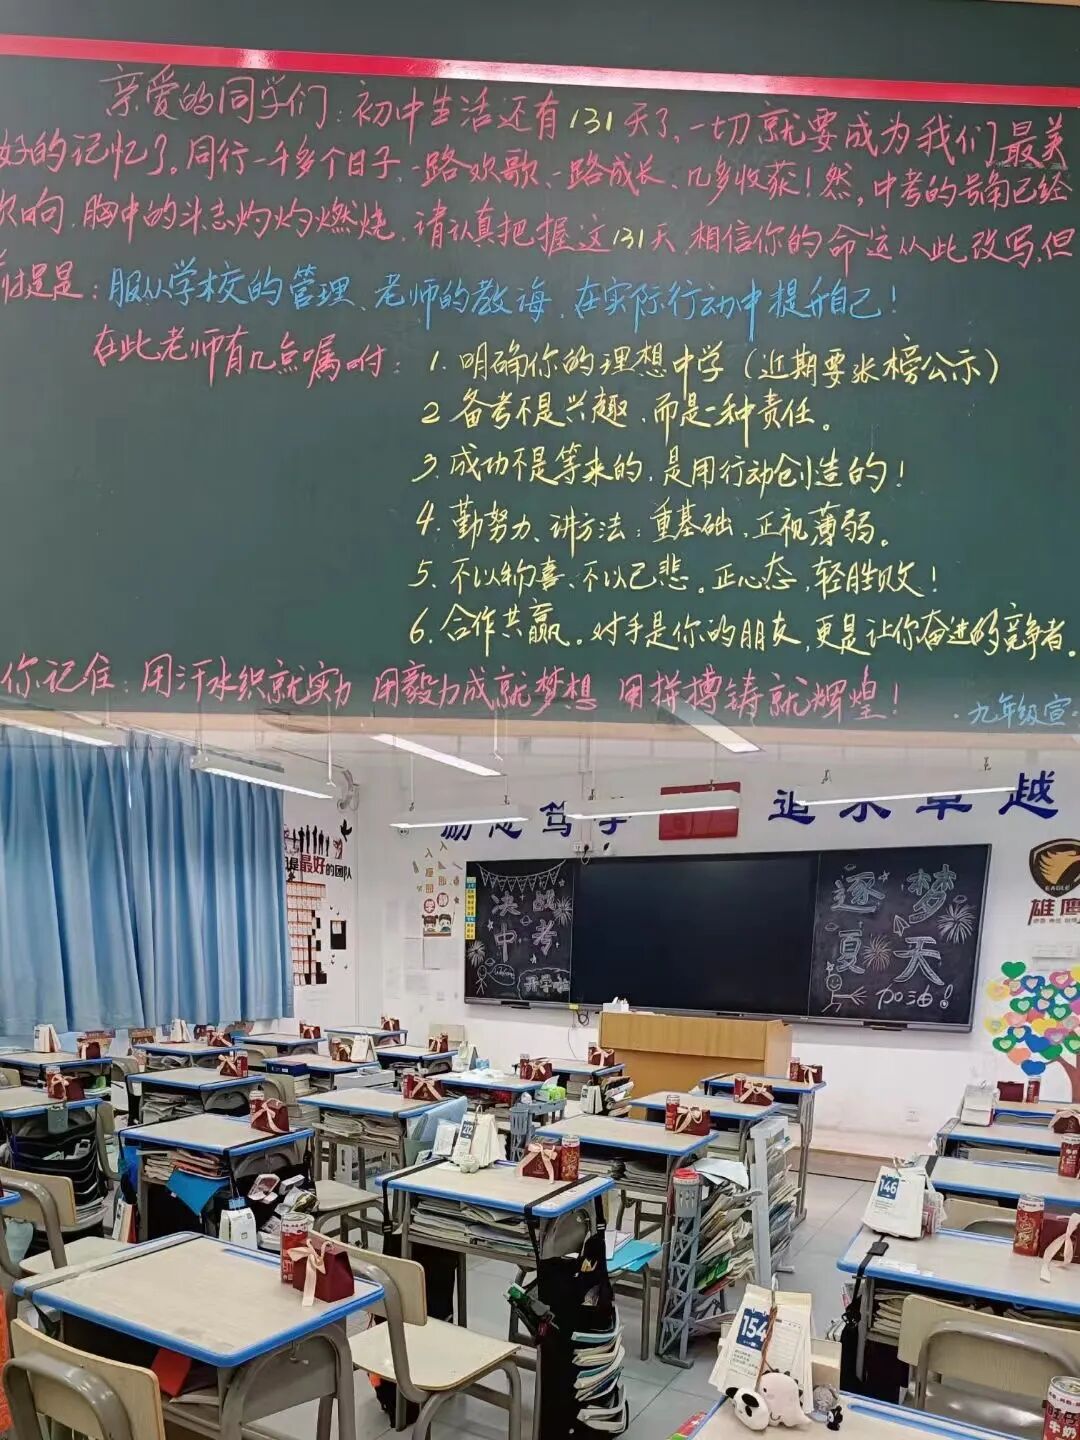 亲爱的同学们：初中生活还有131天了，一切就要成为我们最美
好的记忆了。同行一千多个日子，一路欢歌、一路成长、几多收获！然，中考的号角已经
吹响，胸中的斗志灼灼燃烧，请认真把握这131天，相信你的命运从此改写，但
前提是：服从学校的管理、老师的教诲，在实际行动中提升自己！
在此老师有几点嘱咐：1. 明确你的理想中学（近期要张榜公示）
2 备考不是兴趣，而是一种责任。
3. 成功不是等来的，是用行动创造的！
4. 勤努力、讲方法；重基础，正视薄弱。
5. 不以物喜、不以己悲。正心态，轻胜败！
6. 合作共赢。对手是你的朋友，更是让你奋进的竞争者。
你记住：用汗水织就实力 用毅力成就梦想 用拼搏铸就辉煌！
九年级宣
励志笃学
追求卓越
是最好的团队
决战
中考
开学啦
逐梦
夏天
加油！
EAGLE
雄鹰
212
146
154
牛奶